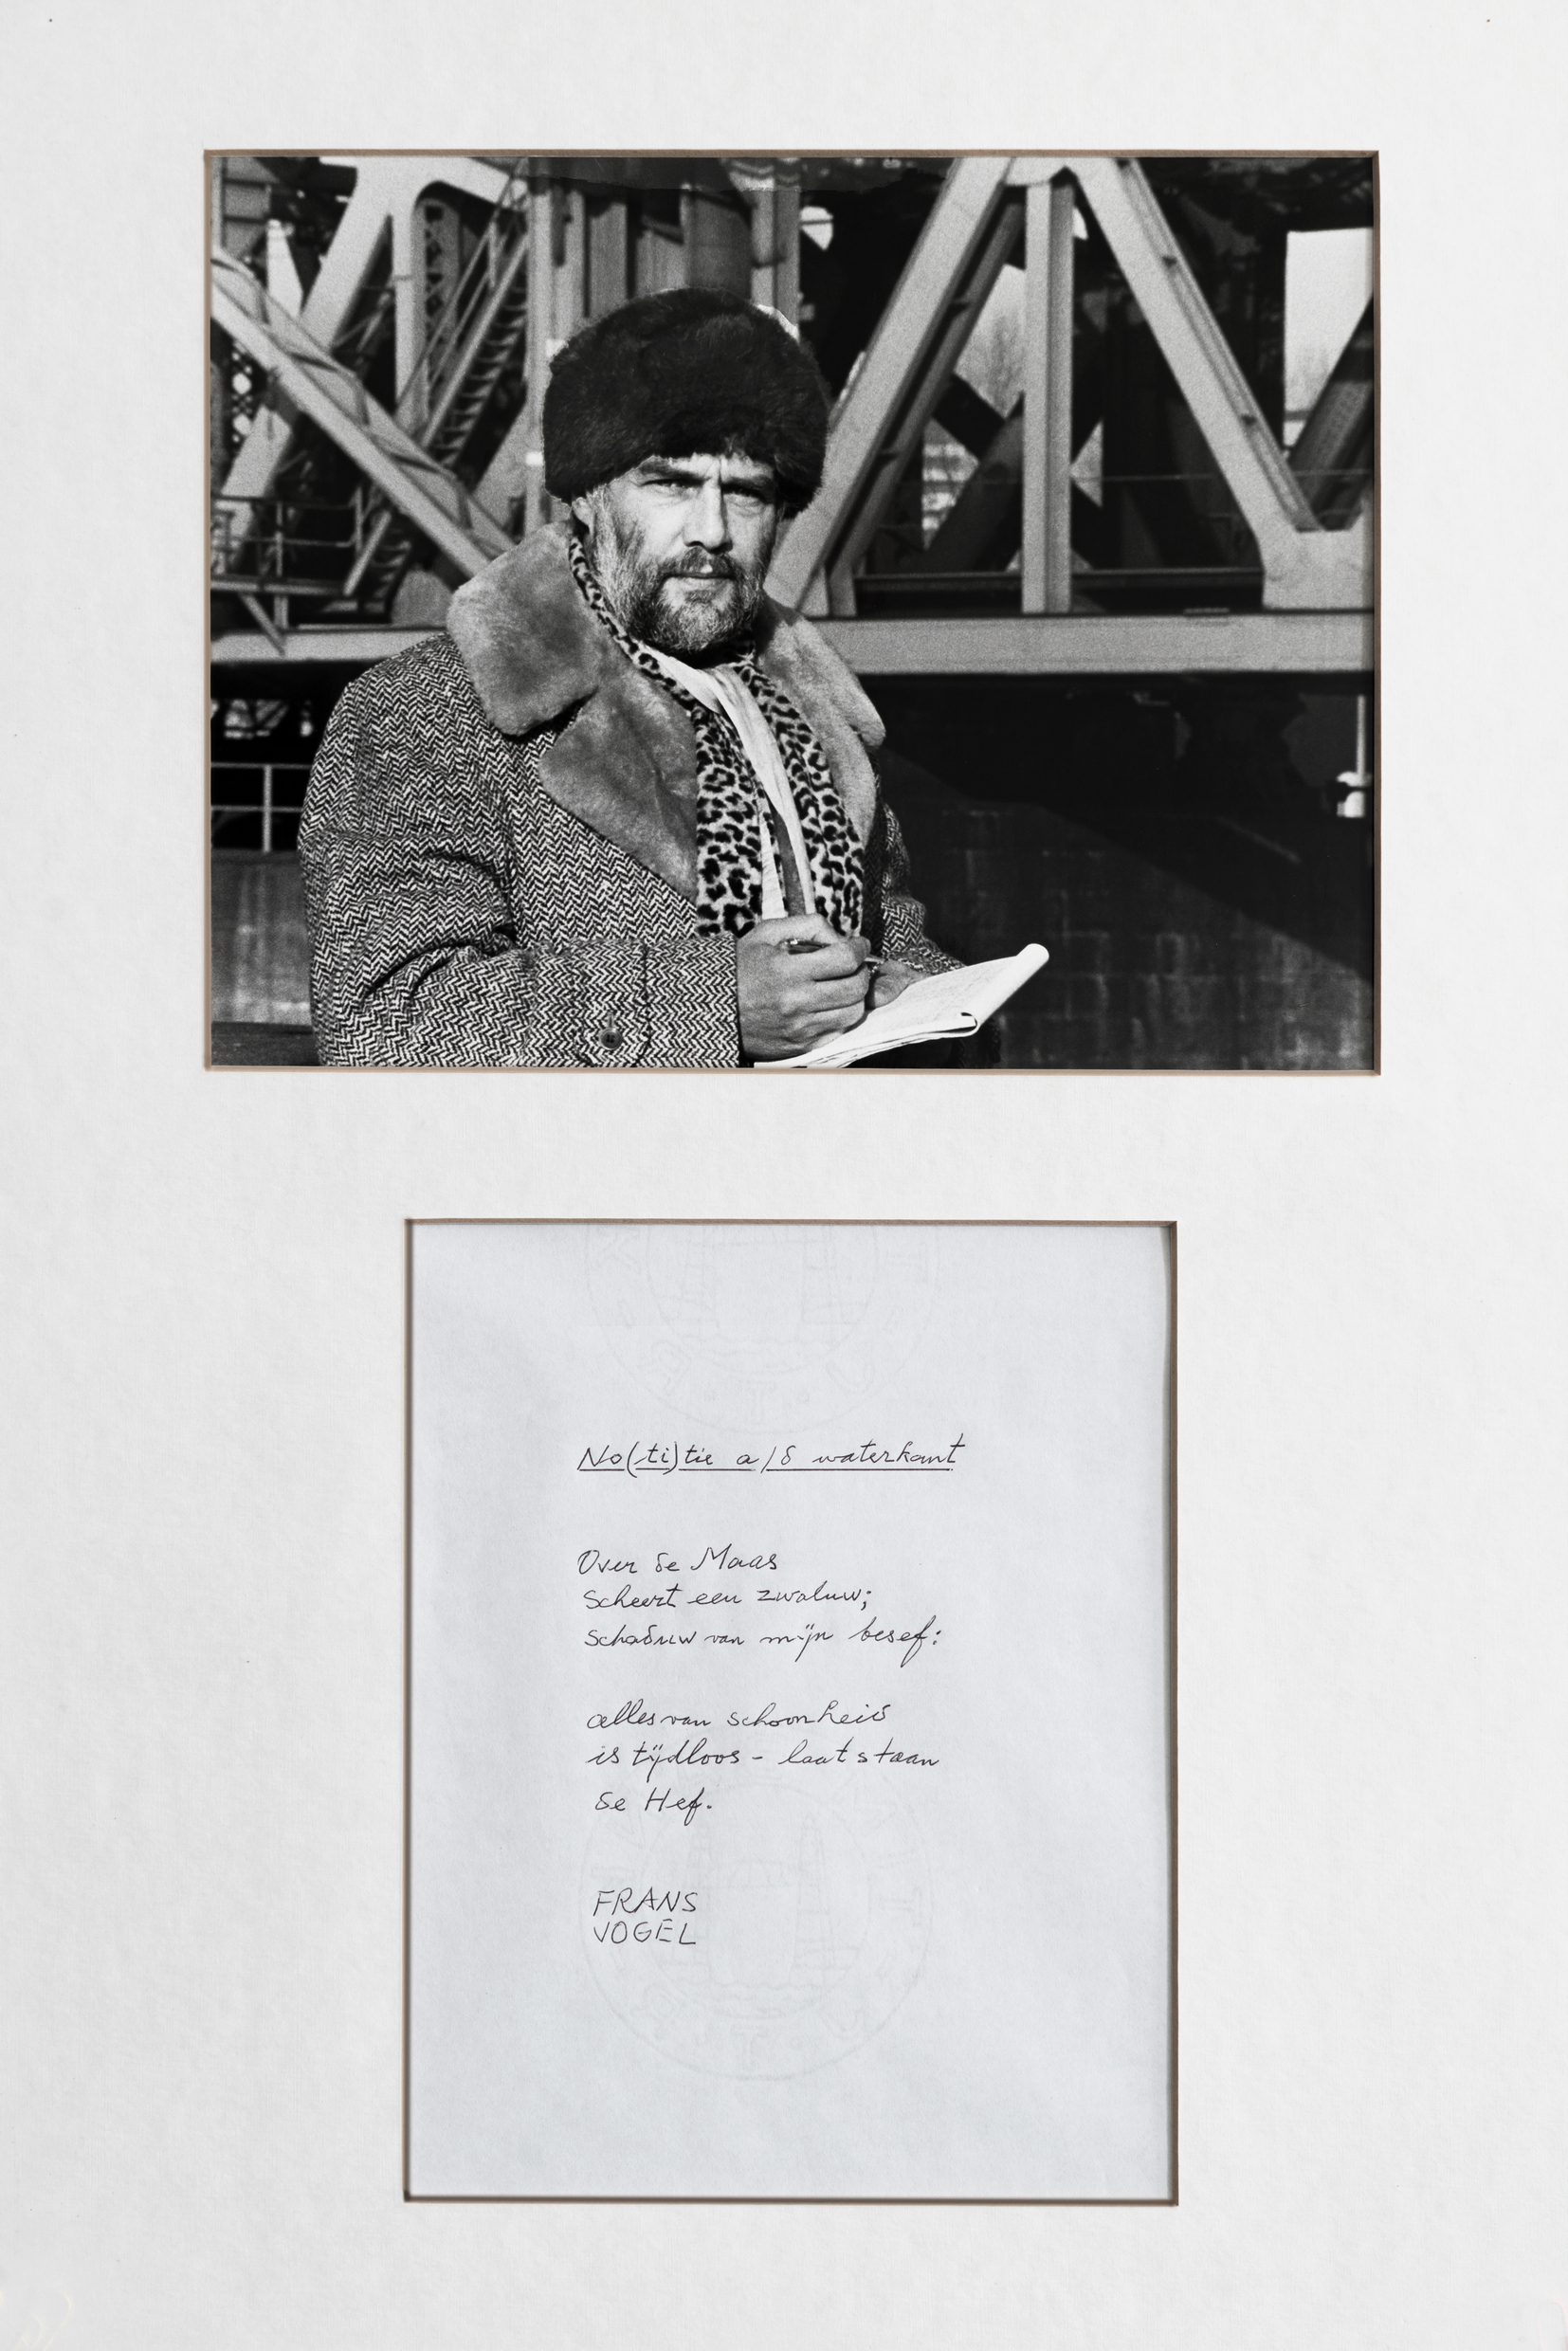 No(ti)tie a/d waterkant
Over de Maas
scheert een zwaluw;
schaduw van mijn besef:
alles van schoonheid
is tijdloos - laat staan
de Hef.
FRANS
VOGEL